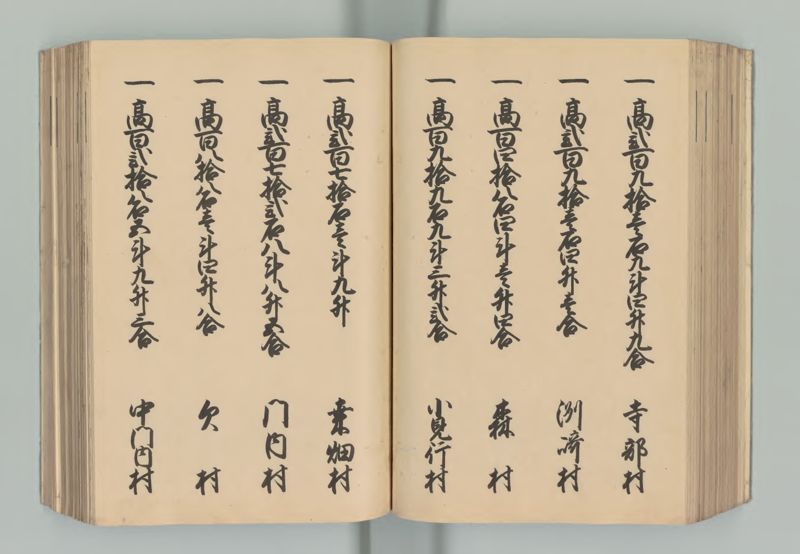 一高弐百九拾壱石九斗四升九合 寺部村
一高弐百九拾壱石四升壱合 洲崎村
一高百四拾八石四斗壱升四合 森村
一高百九拾九石九斗三升弐合 小見行村
一高弐百七拾石壱斗九升 乗畑村
一高弐百七拾弐石八斗八升五合 門内村
一高百八拾八石壱斗四升八合 欠村
一高百弐拾八石五斗九升三合 中門内村